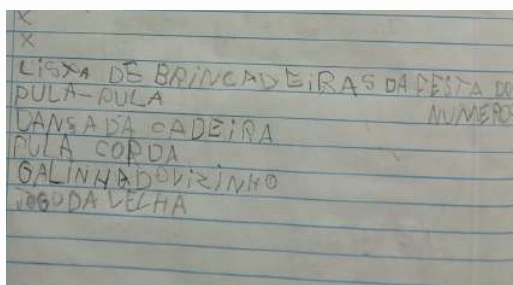 X
X
LISXA DE BRINCADEIRAS DA FESTA DO
NUMERO
PULA-PULA
DANSA DA CADEIRA
PULA CORDA
GALINHADOVIZINHO
JOGODAVELHA